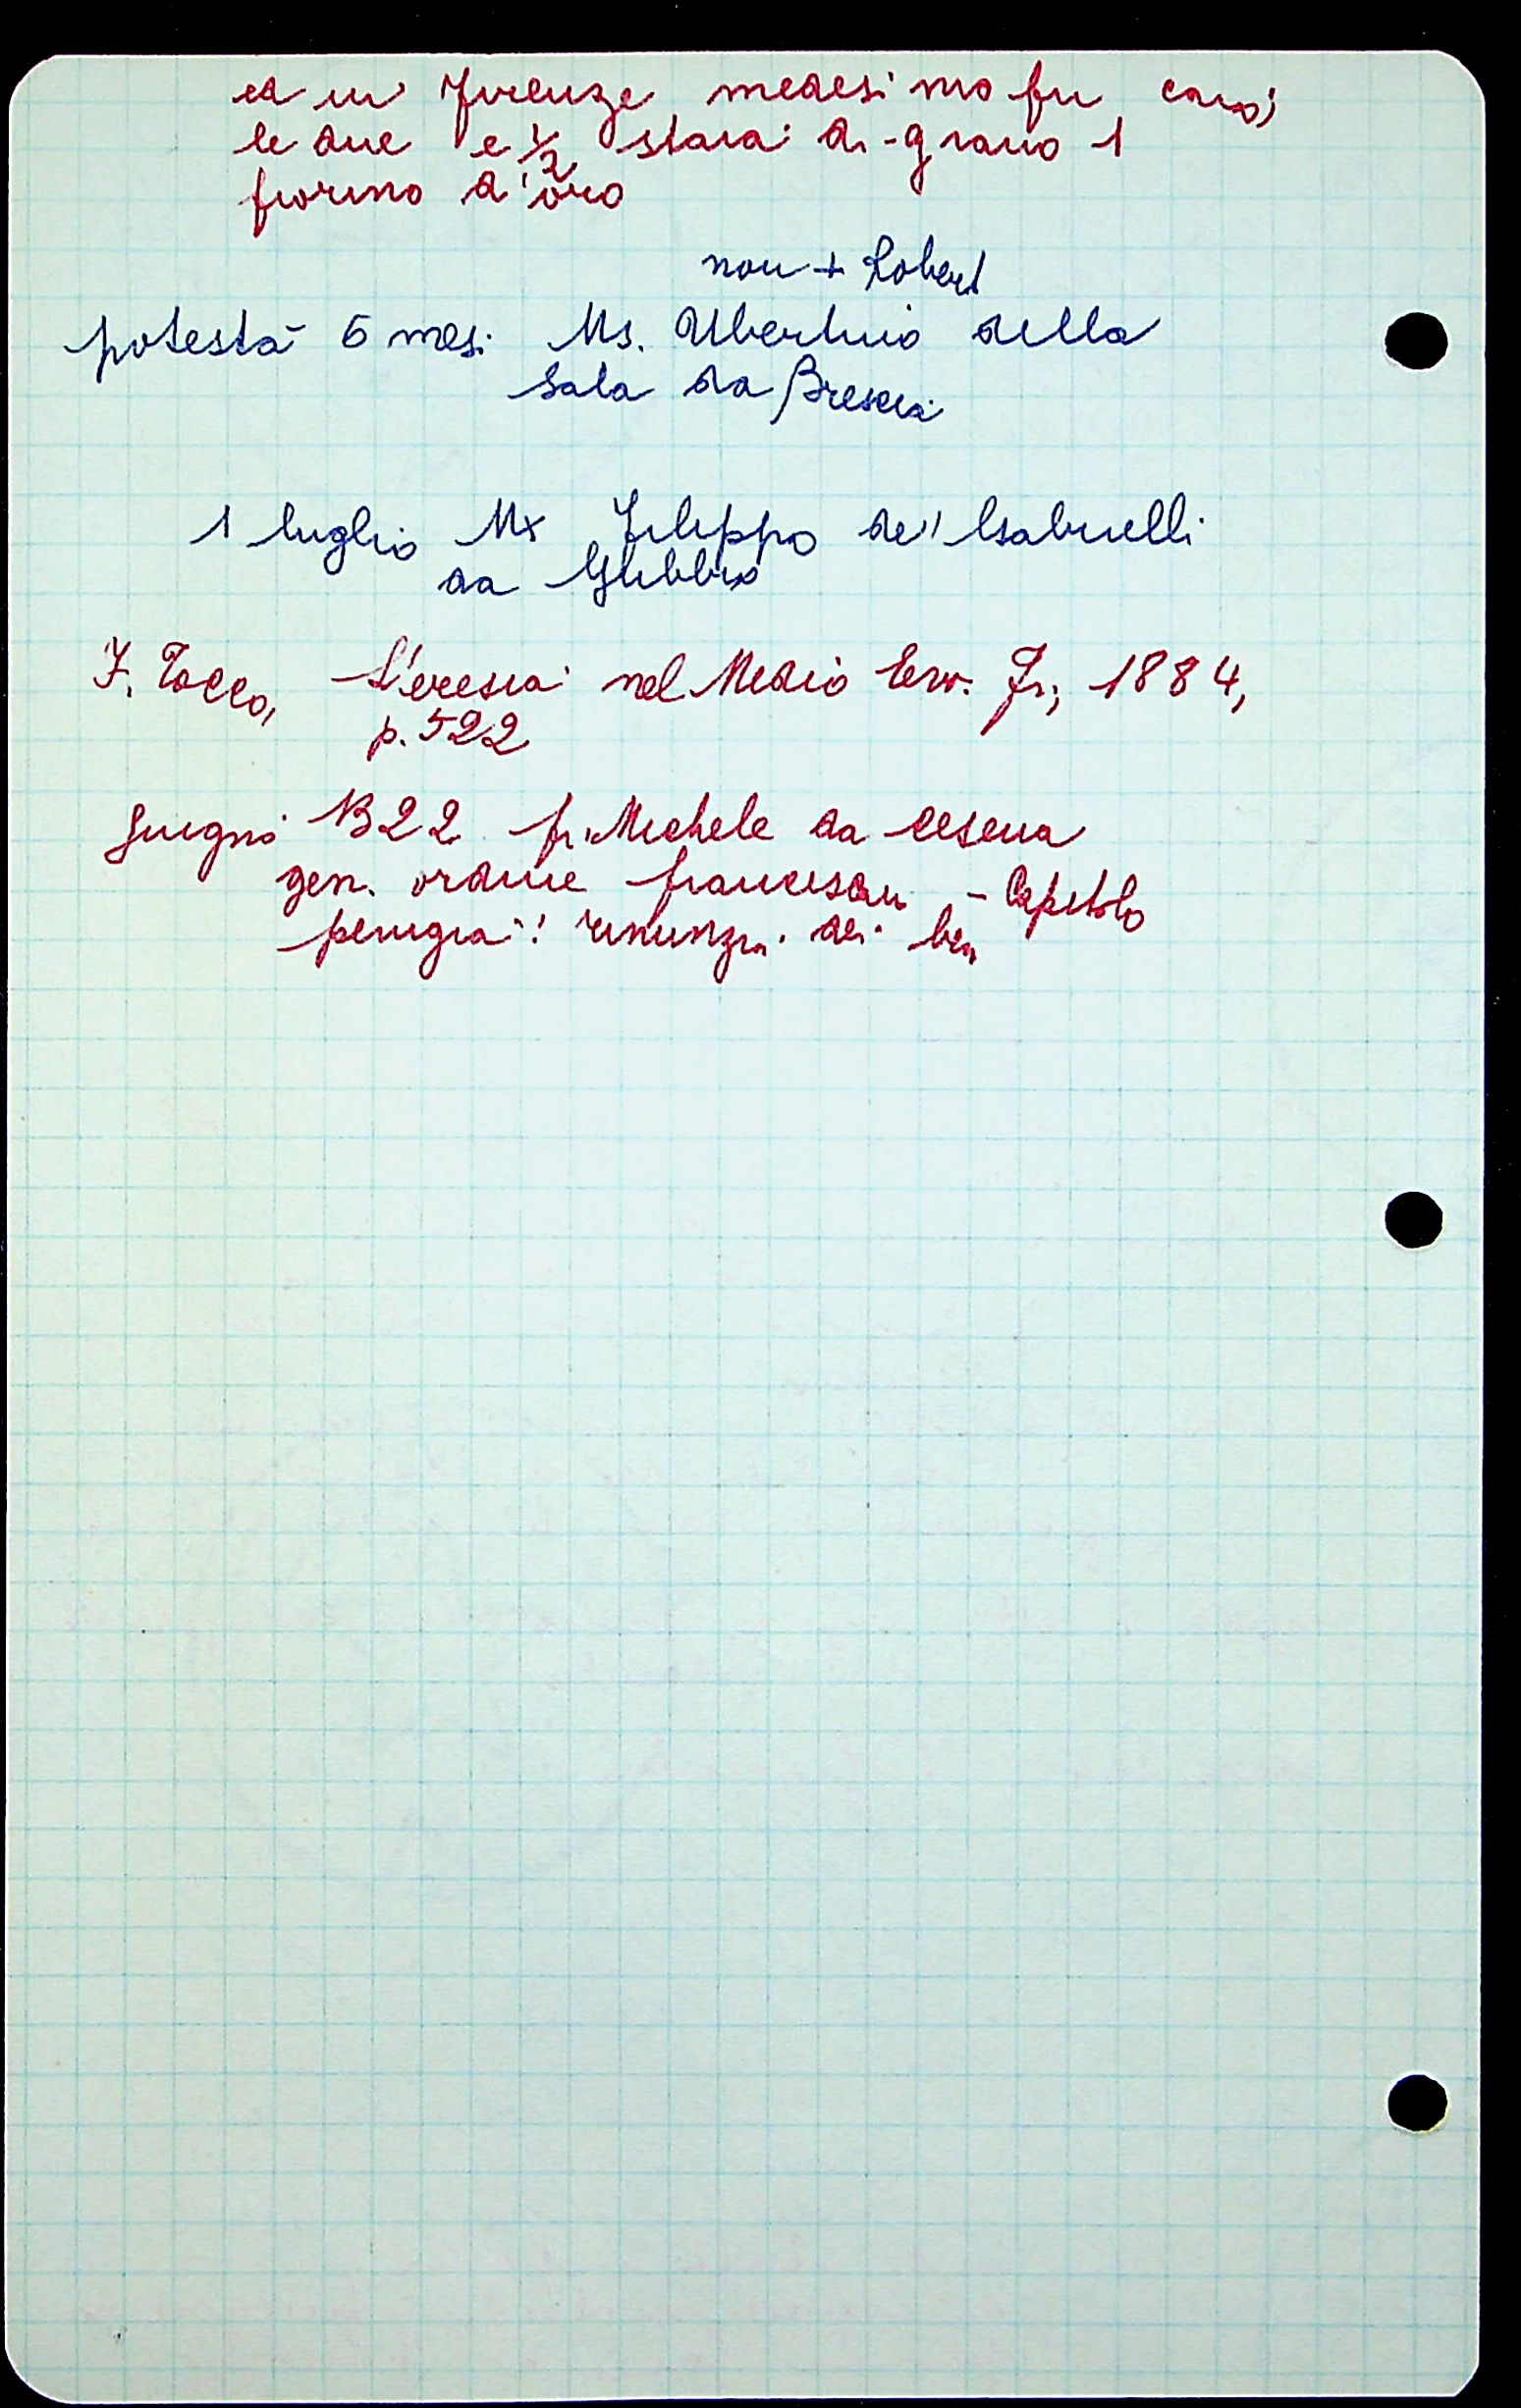 ed in Firenze medesimo fu
le due e ½ staia di grano 1
fiorino d'oro
non + Robert
potestà 6 mesi Ms. Ubertino della
Sala da Brescia
1 luglio Ms Filippo de' Gabrielli
da Ghubbio
F. Tocco, L'eresia nel Medio Evo. Fr., 1884,
p. 522
giugno 1322 fr. Michele da Cesena
gen. ordine francescan - Capitolo
perugia: rinunzia dei ben